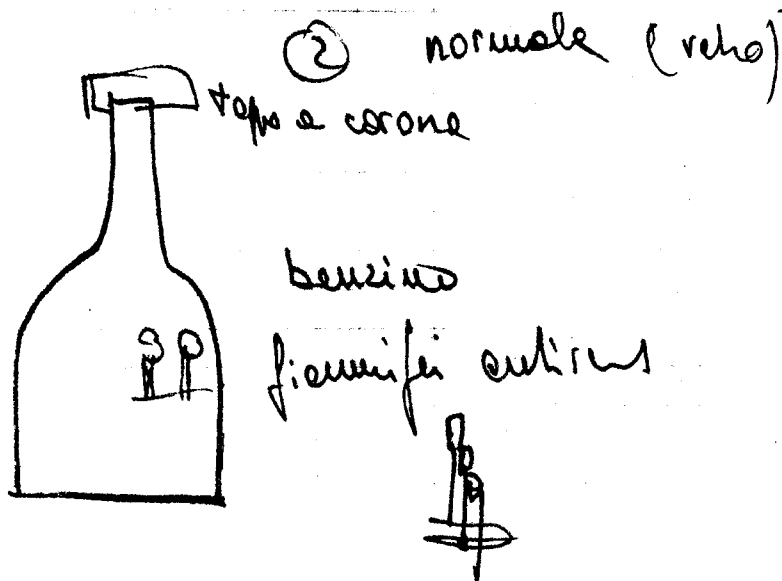 ② normale (vetro)
tappo a corona
benzina
fiammiferi antivento